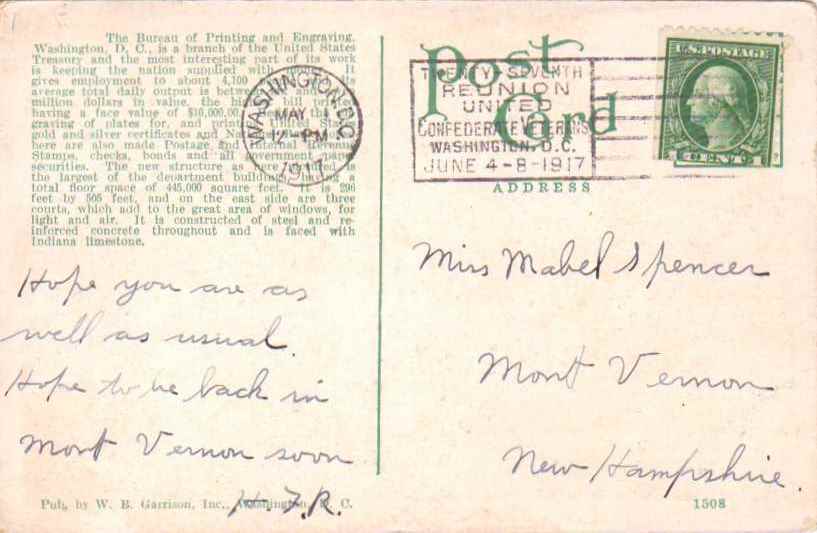 The Bureau of Printing and Engraving,
Washington, D. C., is a branch of the United States
Treasury and the most interesting part of its work
is keeping the nation supplied with It
gives employment to about 4,100 its
average total daily output is between
million dollars in value, the bill printed
having a face value of $10,000.00
graving of plates for, and printing United States
gold and silver certificates and
here are also made Postage and Internal Revenue
Stamps, checks, bonds and all government
securities. The new structure as
the largest of the department buildings, having a
total floor space of 445,000 square feet. is 296
feet by 505 feet, and on the east side are three
courts, which add to the great area of windows, for
light and air. It is constructed of steel and re-
inforced concrete throughout and is faced with
Indiana limestone.
WASHINGTON, D.C.
MAY
12 - PM
1917
Hope you are as
well as usual.
Hope to be back in
Mont Vernon soon
H. F. R.
Pub. by W. B. Garrison, Inc., Washington, D. C.
Post
Card
TWENTY-SEVENTH
REUNION
UNITED
CONFEDERATE VETERANS
WASHINGTON, D.C.
JUNE 4-8-1917
U.S. POSTAGE
1 CENT 1
ADDRESS
Miss Mabel Spencer
Mont Vernon
New Hampshire.
1508